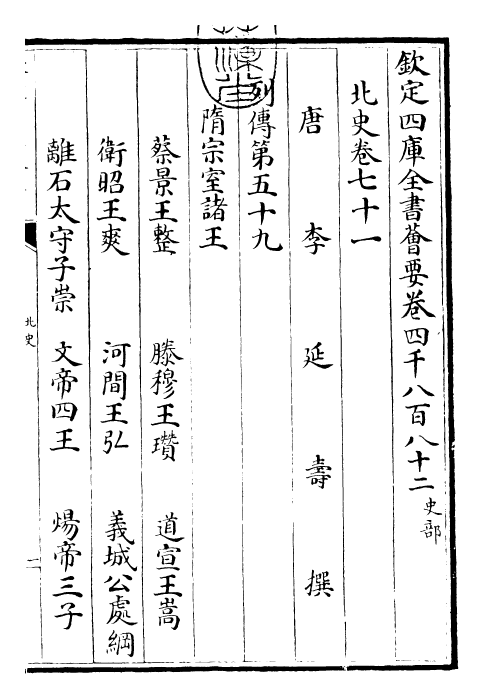 欽定四庫全書薈要卷四千八百八十二 史部
北史卷七十一
唐 李 延 壽 撰
列傳第五十九
隋宗室諸王
蔡景王整 滕穆王瓚 道宣王嵩
衛昭王爽 河間王弘 義城公處綱
離石太守子崇 文帝四王 煬帝三子
北史